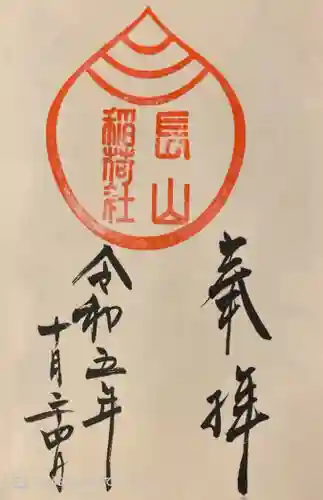 奉拝
長山
稲荷社
令和五年
十月二十四日